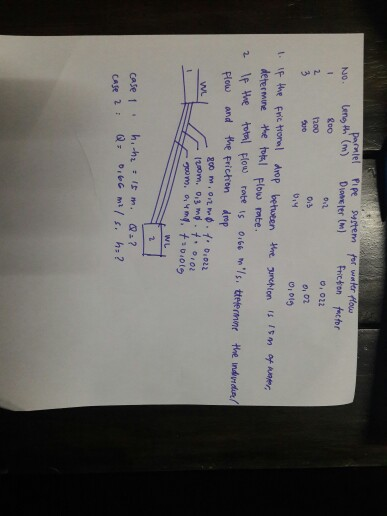 parallel Pipe system for water flow
No. Length (m) Diameter (m) Friction factor
1 800 0,2 0,022
2 1200 0,3 0,02
3 900 0,4 0,019
1. If the frictional drop between the junction is 15 m of water,
determine the total flow rate.
2 If the total flow rate is 0,66 m³/s, determine the individual
flow and the friction drop
WL
1
800 m, 0,2 mϕ, f = 0,022
1200m, 0,3 mϕ, f = 0,02
900m, 0,4 mϕ, f = 0,019
WL
2
case 1 : h1-h2 = 15 m, Q = ?
case 2 : Q = 0,66 m³/s, h = ?